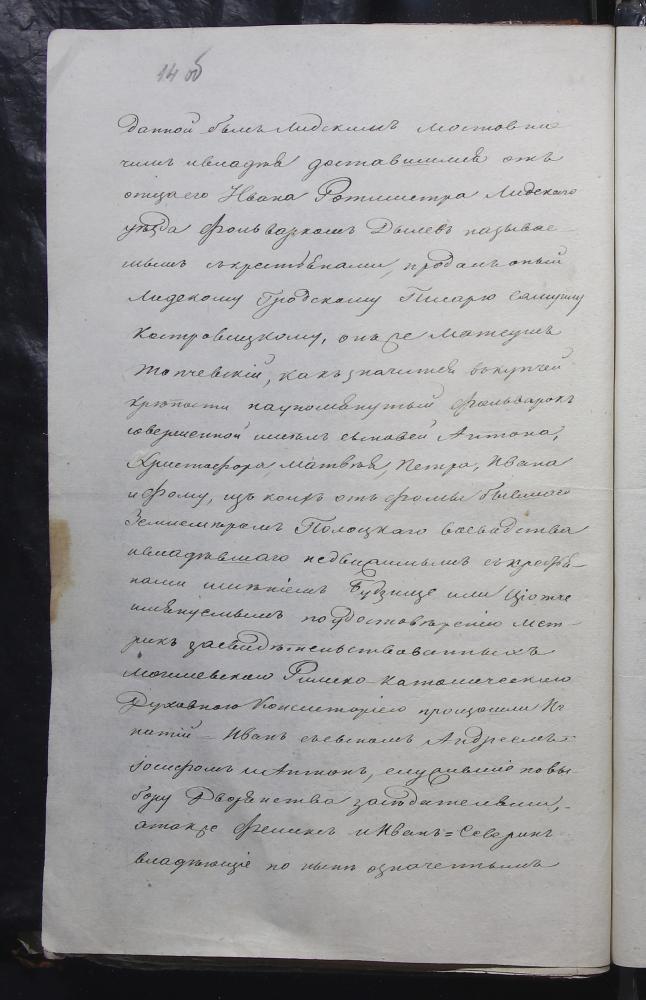 14 об
данной былъ Лидскимъ мостовни
чимъ и владѣя доставшимся отъ
отца его Ивана Ротмистра Лидскаго
уѣзда фольваркомъ Дылевъ называе-
мымъ съ крестьянами, продалъ оный
Лидскому Гродскому Писарю Самуилу
Костровицкому, онъ же Матеушъ
Топчевскій, какъ значится въ купчей
крѣпости на упомянутый фольварокъ
совершенной имѣлъ сыновей Антона,
Христофора, Матвѣя, Петра, Ивана
и Фому, изъ коихъ отъ Фомы бывшаго
Земнемѣромъ Полоцкаго воеводства
и владѣвшаго недвижимымъ съ кресть-
нами имѣніемъ или
имянуемымъ по удостовѣренію мет-
рикъ засвидѣтельствованныхъ
Могилевскою Римско-католическою
Духовною Консисторіею произошли Иг
натій - Иванъ съ сыномъ Андреемъ-
Іосифомъ и Антонъ, служившіе по вы-
бору Дворянства засѣдателями,
а также Феликсъ и Иванъ=Северинъ
владѣющіе по нынѣ означеннымъ